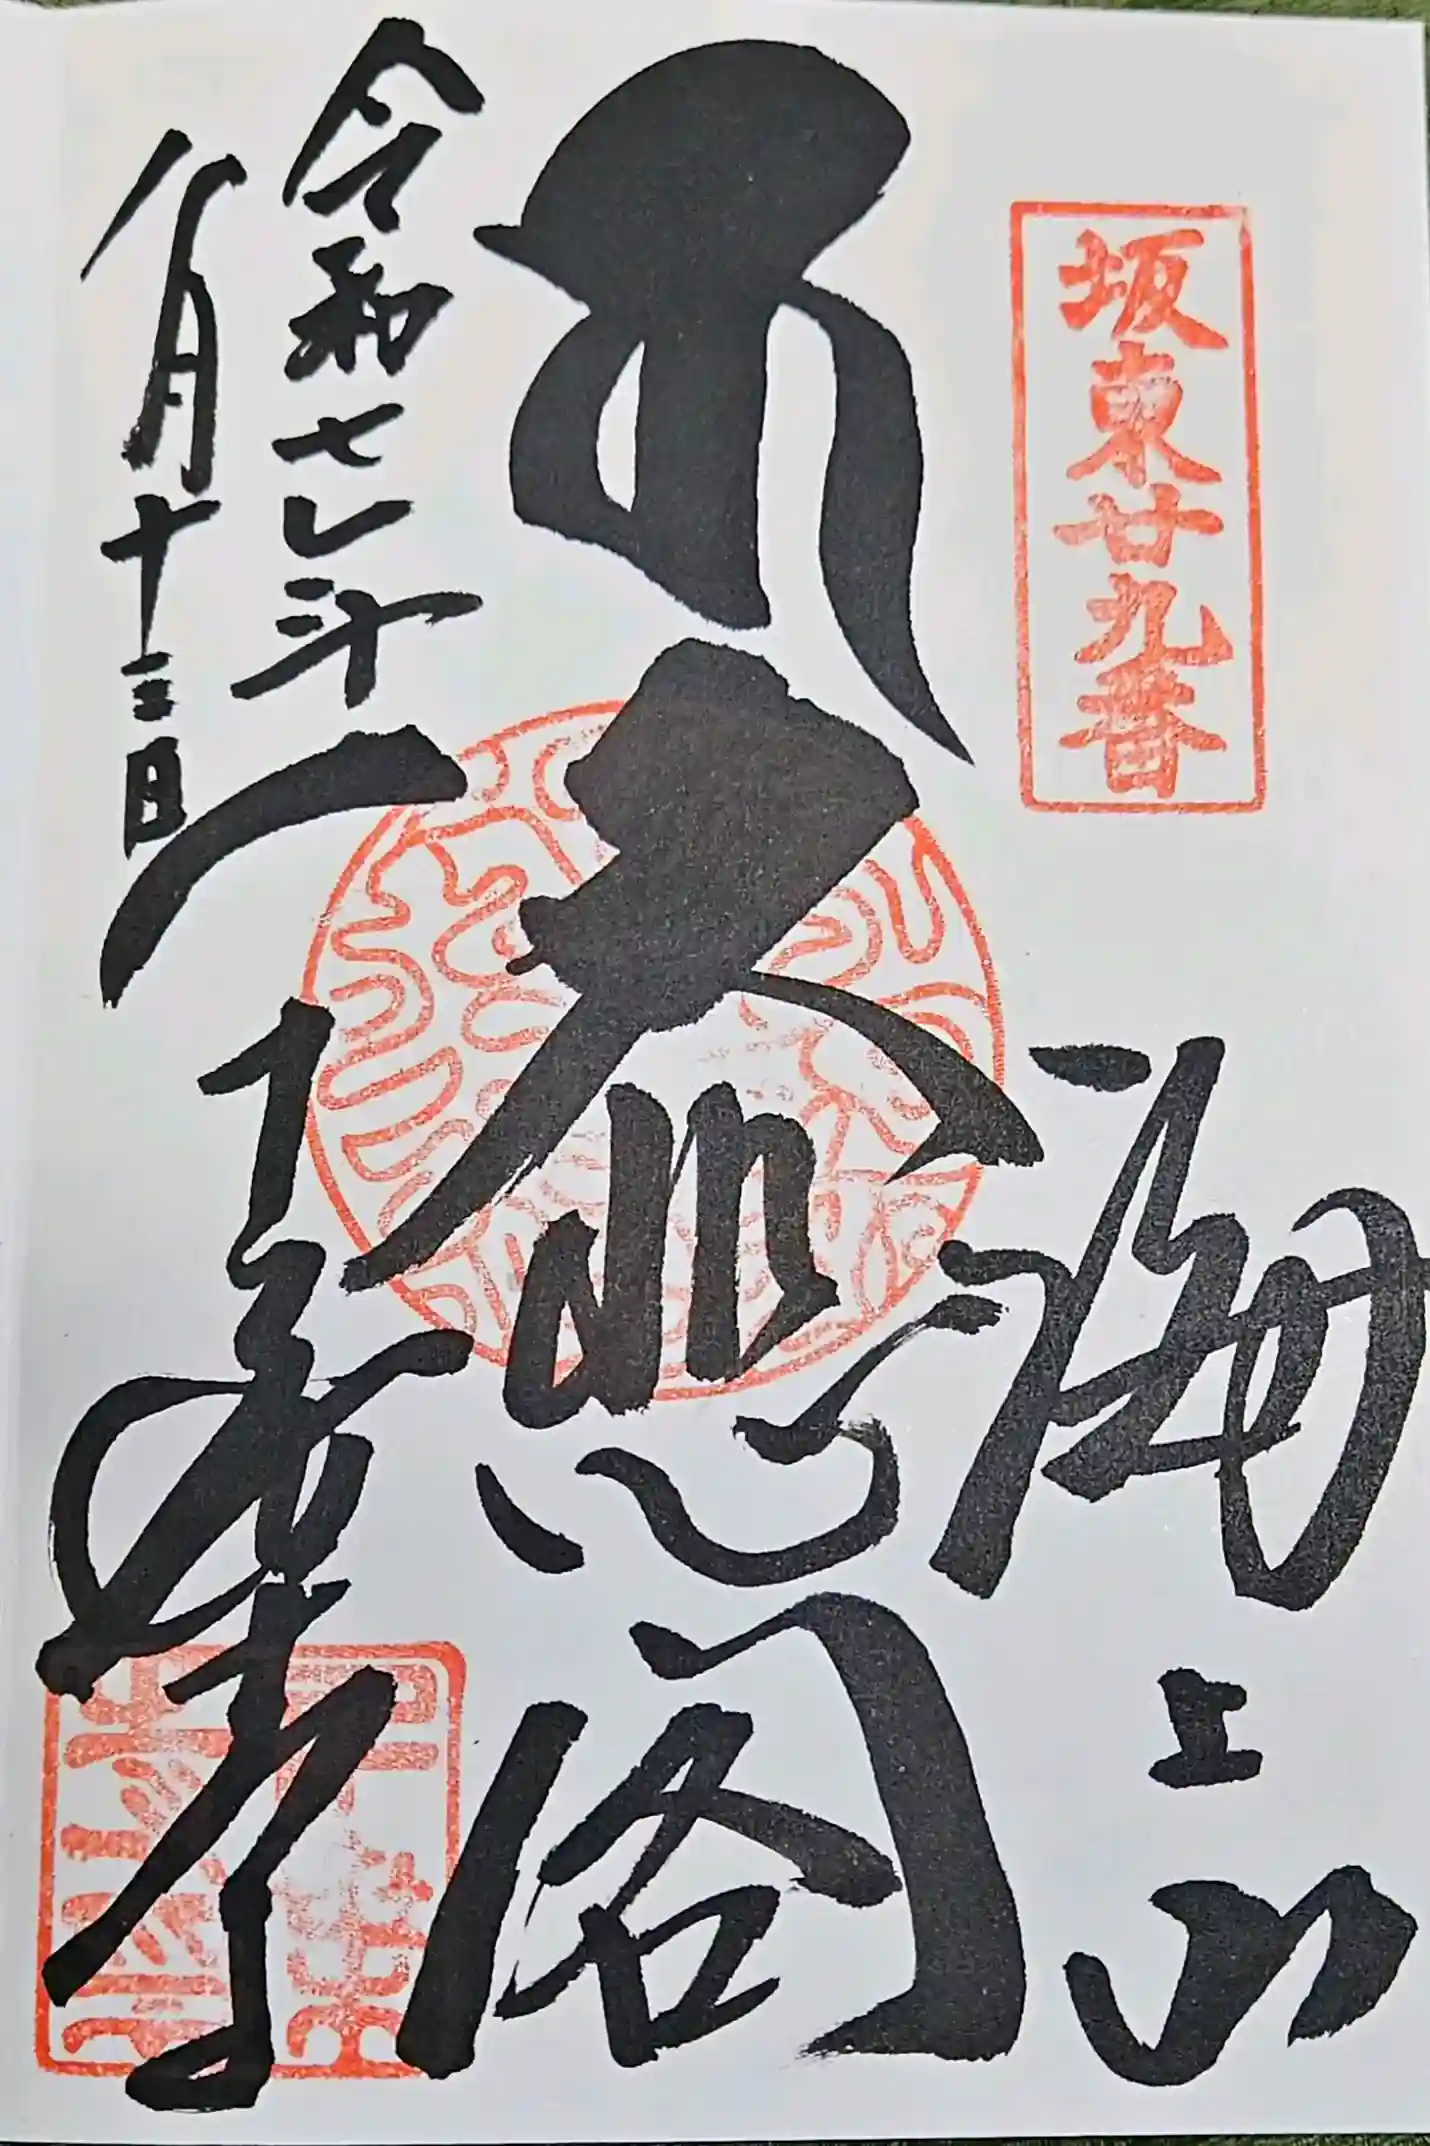 坂東廿九番
海上山
大悲閣
令和七年
八月十三日
千葉寺